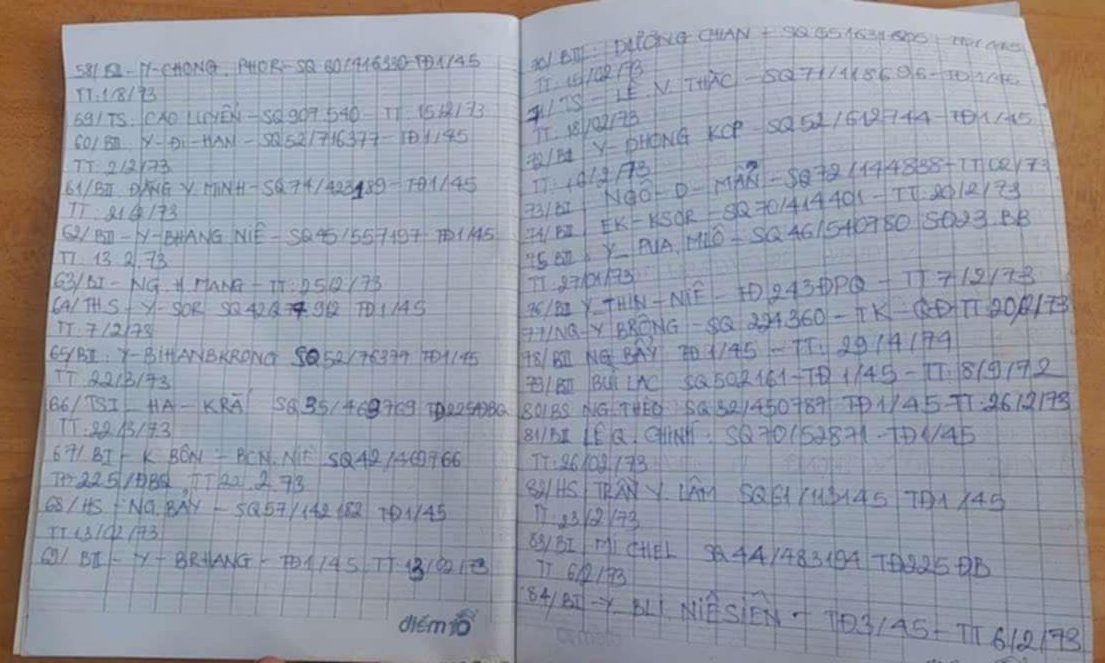 58/ BI - Y-CHONG. PHOR - SQ 60/416330-TĐ1/45
TT: 1/8/73
59/TS. CAO LUYẾN - SQ 907.540 - TT 15/2/73
60/BII. Y-ĐI-HAN - SQ52/716377-TĐ1/45
TT 2/2/73
61/BII ĐĂNG Y MINH-SQ71/423189-TĐ1/45
TT. 21/2/73
62/BII-Y-BHANG NIÊ - SQ45/557197 TĐ1/45
TT. 13.2.73
63/BI - NG H MANG - TT: 25/2/73
64/TH.S - Y-SOR SQ42 TĐ1/45
TT. 7/2/73
65/BI. Y-BIHANBKRONG SQ52/76377 TĐ1/45
TT 22/3/73
66/TSI HA-KRĂ SQ35/468769
TT:22/3/73
67/ BI - K BÔN - BCN.NIÊ SQ42/460766
TĐ 225/ĐBQ TT 22.2.73
68/HS - NG.BẢY - SQ57/142182 TĐ1/45
TT 13/02/73
69/ BII-Y-BRHANG-TĐ1/45 TT 13/02/73
điểm 10
70/ BII: DƯƠNG CHAN - SQ
TT. 15/02/73
71/TS - LÊ.V THẮC - SQ71/118696-TĐ1/45
TT 18/02/73
72/BI Y-PHONG KCP - SQ52/612744-TĐ1/45
TT: 10/2/73
73/BI NGÔ-D-MẪN-SQ72/144838-TT/02/73
74/BII EK-KSOR-SQ70/414401-TT.20/2/73
75 BII Y-PUA.MLÔ-SQ46/540780 SĐ23.BB
TT.27/01/73
76/BI Y THIN-NIÊ-TĐ243ĐPQ-TT 7/2/73
77/NQ-Y BRÔNG-SQ 224360-TK-QĐ TT 20/2/73
78/BII NG BẢY TĐ1/45-TT: 29/4/74
79/BII BÙI LẠC SQ502161-TĐ 1/45-TT: 8/9/72
80/BS NG THÈO SQ32/450787 TĐ1/45-TT 26/2/73
81/BI LÊ Q. CHINH. SQ70/52871-TĐ1/45
TT:26/02/73
82/HS TRẦN V LÂM SQ61/113145 TĐ1/45
TT.23/2/73
83/BI MICHEL SQ44/483194 TĐ225 ĐB
TT 6/2/73
84/BI-Y BLI NIÊSIÊN - TĐ3/45-TT 6/2/73